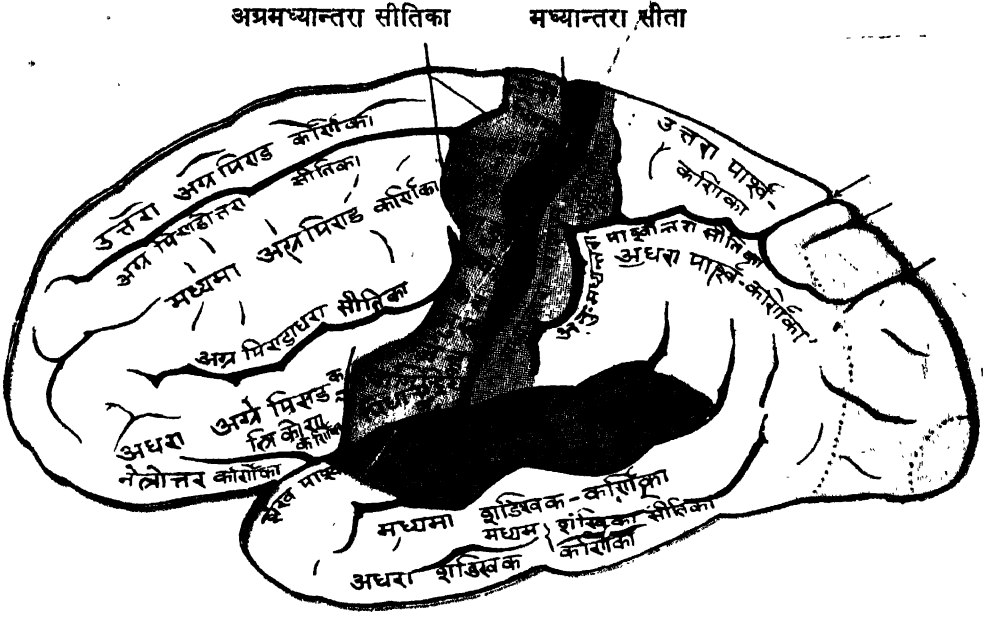 अग्रमध्यान्तरा सीतिका
मध्यान्तरा सीता
उत्तरा अग्रपिराड कर्णिका
अग्र पिराडोत्तरा सीतिका
मध्यमा अग्रपिराड कर्णिका
अग्र पिराडाधरा सीतिका
अधरा अग्र पिराड क
त्रिकोण
कर्णिका
नेत्रोत्तर कर्णिका
उत्तरा पार्श्व-
कर्णिका
पार्श्वान्तरा सीतिका
अधरा पार्श्व-कर्णिका
मध्यमा शङ्खिक-कर्णिका
मध्यम शंखिका सीतिका
अधरा शङ्खिक कर्णिका